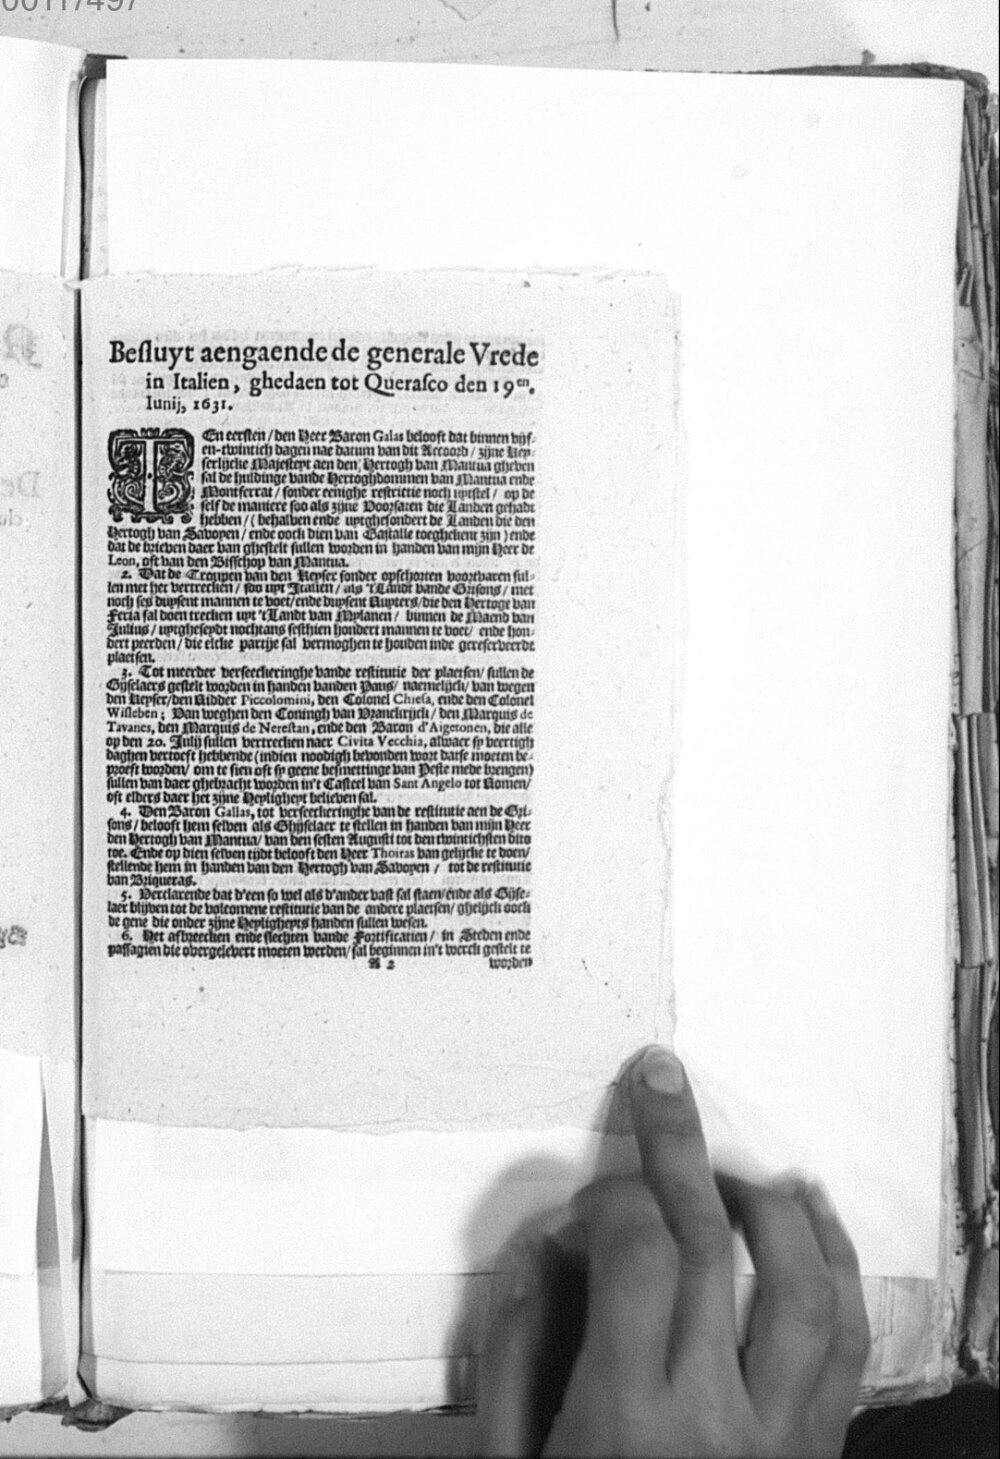 00117497
Besluyt aengaende de generale Vrede
in Italien, ghedaen tot Querasco den 19en.
Iunij, 1631.
TEn eersten / den Heer Baron Galas belooft dat binnen vijf-
en-twintich dagen nae datum van dit Accoord / zijne Key-
serlijcke Majesteyt aen den Hertogh van Mantua gheven
sal de huldinge vande Hertoghdommen van Mantua ende
Montferrat / sonder eenighe restrictie noch uytstel / op de
self de maniere soo als zijne Voorsaten die Landen gehadt
hebben / ( behalven ende uytghesondert de Landen die den
Hertogh van Savoyen / ende oock dien van Gastalle toegekent zijn ) ende
dat de brieven daer van ghestelt sullen worden in handen van mijn Heer de
Leon, oft van den Bisschop van Mantua.
2. Dat de Troupen van den Keyser sonder opschorten voortvaren sul-
len met het vertrecken / soo uyt Italien / als 't Landt vande Grisons / met
noch ses duysent mannen te voet / ende duysent Ruyters / die den Hertoge van
Feria sal doen trecken uyt 't Landt van Mylanen / binnen de Maend van
Julius / uytgheseydt nochtans sesthien hondert mannen te voet / ende hon-
dert peerden / die elcke partije sal vermoghen te houden inde gereserveerde
plaetsen.
3. Tot meerder verseeckeringhe vande restitutie der plaetsen / sullen de
Gijselaers gestelt worden in handen vanden Paus / naemelijck / van wegen
den Keyser / den Ridder Piccolomini, den Colonel Chiesa, ende den Colonel
Wisleben ; Van weghen den Coningh van Vranckrijck / den Marquis de
Tavanes, den Marquis de Nerestan, ende den Baron d'Aigetonen, die alle
op den 20. Julij sullen vertrecken naer Civita Vecchia, alwaer sy veertigh
daghen vertoeft hebbende (indien noodigh bevonden wort datse moeten be-
proeft worden / om te sien oft sy geene besmettinge van Peste mede brengen)
sullen van daer ghebracht worden in't Casteel van Sant Angelo tot Romen /
oft elders daer het zijne Heyligheyt believen sal.
4. Den Baron Gallas, tot verseeckeringhe van de restitutie aen de Gri-
sons / belooft hem selven als Ghijselaer te stellen in handen van mijn Heer
den Hertogh van Mantua / van den sesten Augusti tot den twintichsten dito
toe. Ende op dien selven tijdt belooft den Heer Thoiras van gelijcke te doen /
stellende hem in handen van den Hertogh van Savoyen / tot de restitutie
van Briqueras.
5. Verclarende dat d'een so wel als d'ander vast sal staen / ende als Gijse-
laer blijven tot de volcomene restitutie van de andere plaetsen / ghelijck oock
de gene die onder zijne Heyligheyts handen sullen wesen.
6. Het afbreecken ende slechten vande Fortificatien / in Steden ende
passagien die overgelevert moeten werden / sal beginnen in't werck gestelt te
A 2 worden